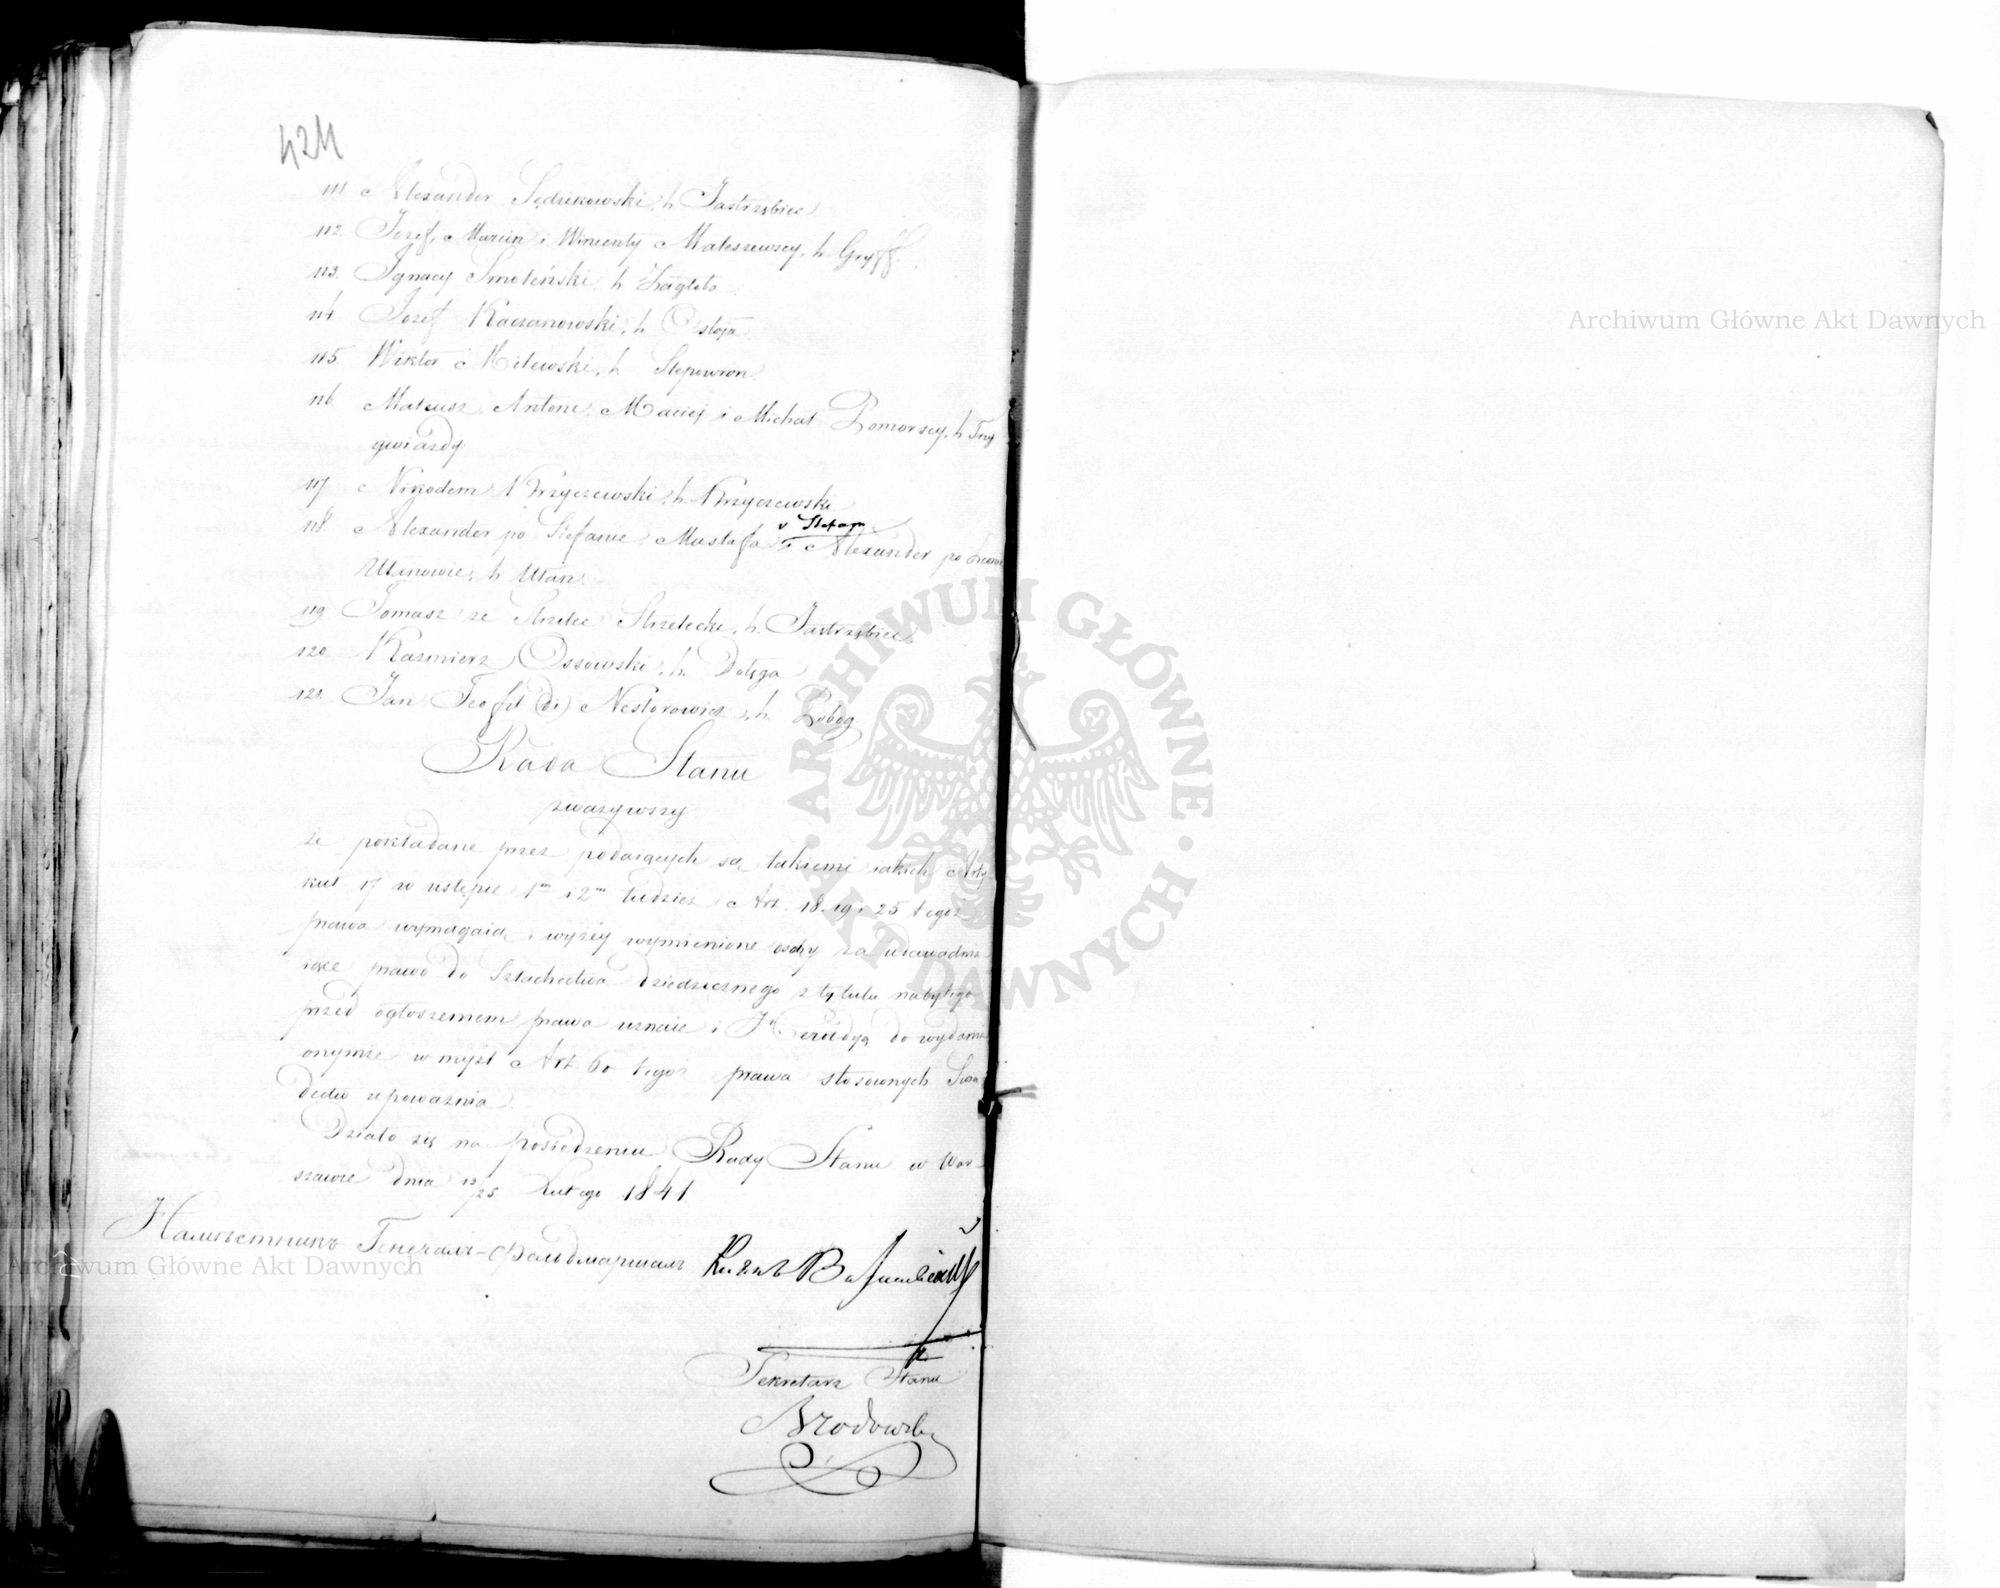 424
111. Alexander Sędzikowski, h. Jastrzębiec.
112. Jozef, Marcin i Wincenty Mateszewscy, h. Gryff.
113. Ignacy Smoleński, h. Zagłoba.
114. Jozef Kaczanowski, h. Ostoja.
115. Wiktor Milewski, h. Slepowron.
116. Mateusz, Antoni, Maciej i Michał Pomorscy, h. Trzy
gwiazdy
117. Nikodem Krzyczewski, h. Krzyczewski
v Stefan
118. Alexander po Stefanie, Mustafa i Alexander po
Ułanowie, h. Ułan.
119. Tomasz ze Strzelec Strzelecki, h. Jastrzębiec.
120. Kazmierz Ossowski, h. Dołęga
121. Jan Teofil (2i) Nestorowicz, h. Pobog
Rada Stanu
zważywszy
że pokładane przez podaiących są takiemi iakich Arty-
kuł 17 w ustępie 1m i 2m tudzież Art. 18. 19 i 25 tegoż
prawa wymagaią, wyżéy wymienione osoby za udowadnia-
iące prawo do Szlachectwa dziedzicznego z tytułu nabytego
przed ogłoszeniem prawa uznaie i Heroldyą do wydania
onymże w myśl Art 60 tegoż prawa stosownych Swia-
dectw upoważnia.
Działo się na posiedzeniu Rady Stanu w War-
szawie dnia 13/25 Lutego 1841
Намѣстникъ Генералъ-Фельдмаршалъ Князь Варшавскій
Sekretarz Stanu
Brodowski
Archiwum Główne Akt Dawnych
Archiwum Główne Akt Dawnych
ARCHIWUM GŁÓWNE · AKT DAWNYCH ·